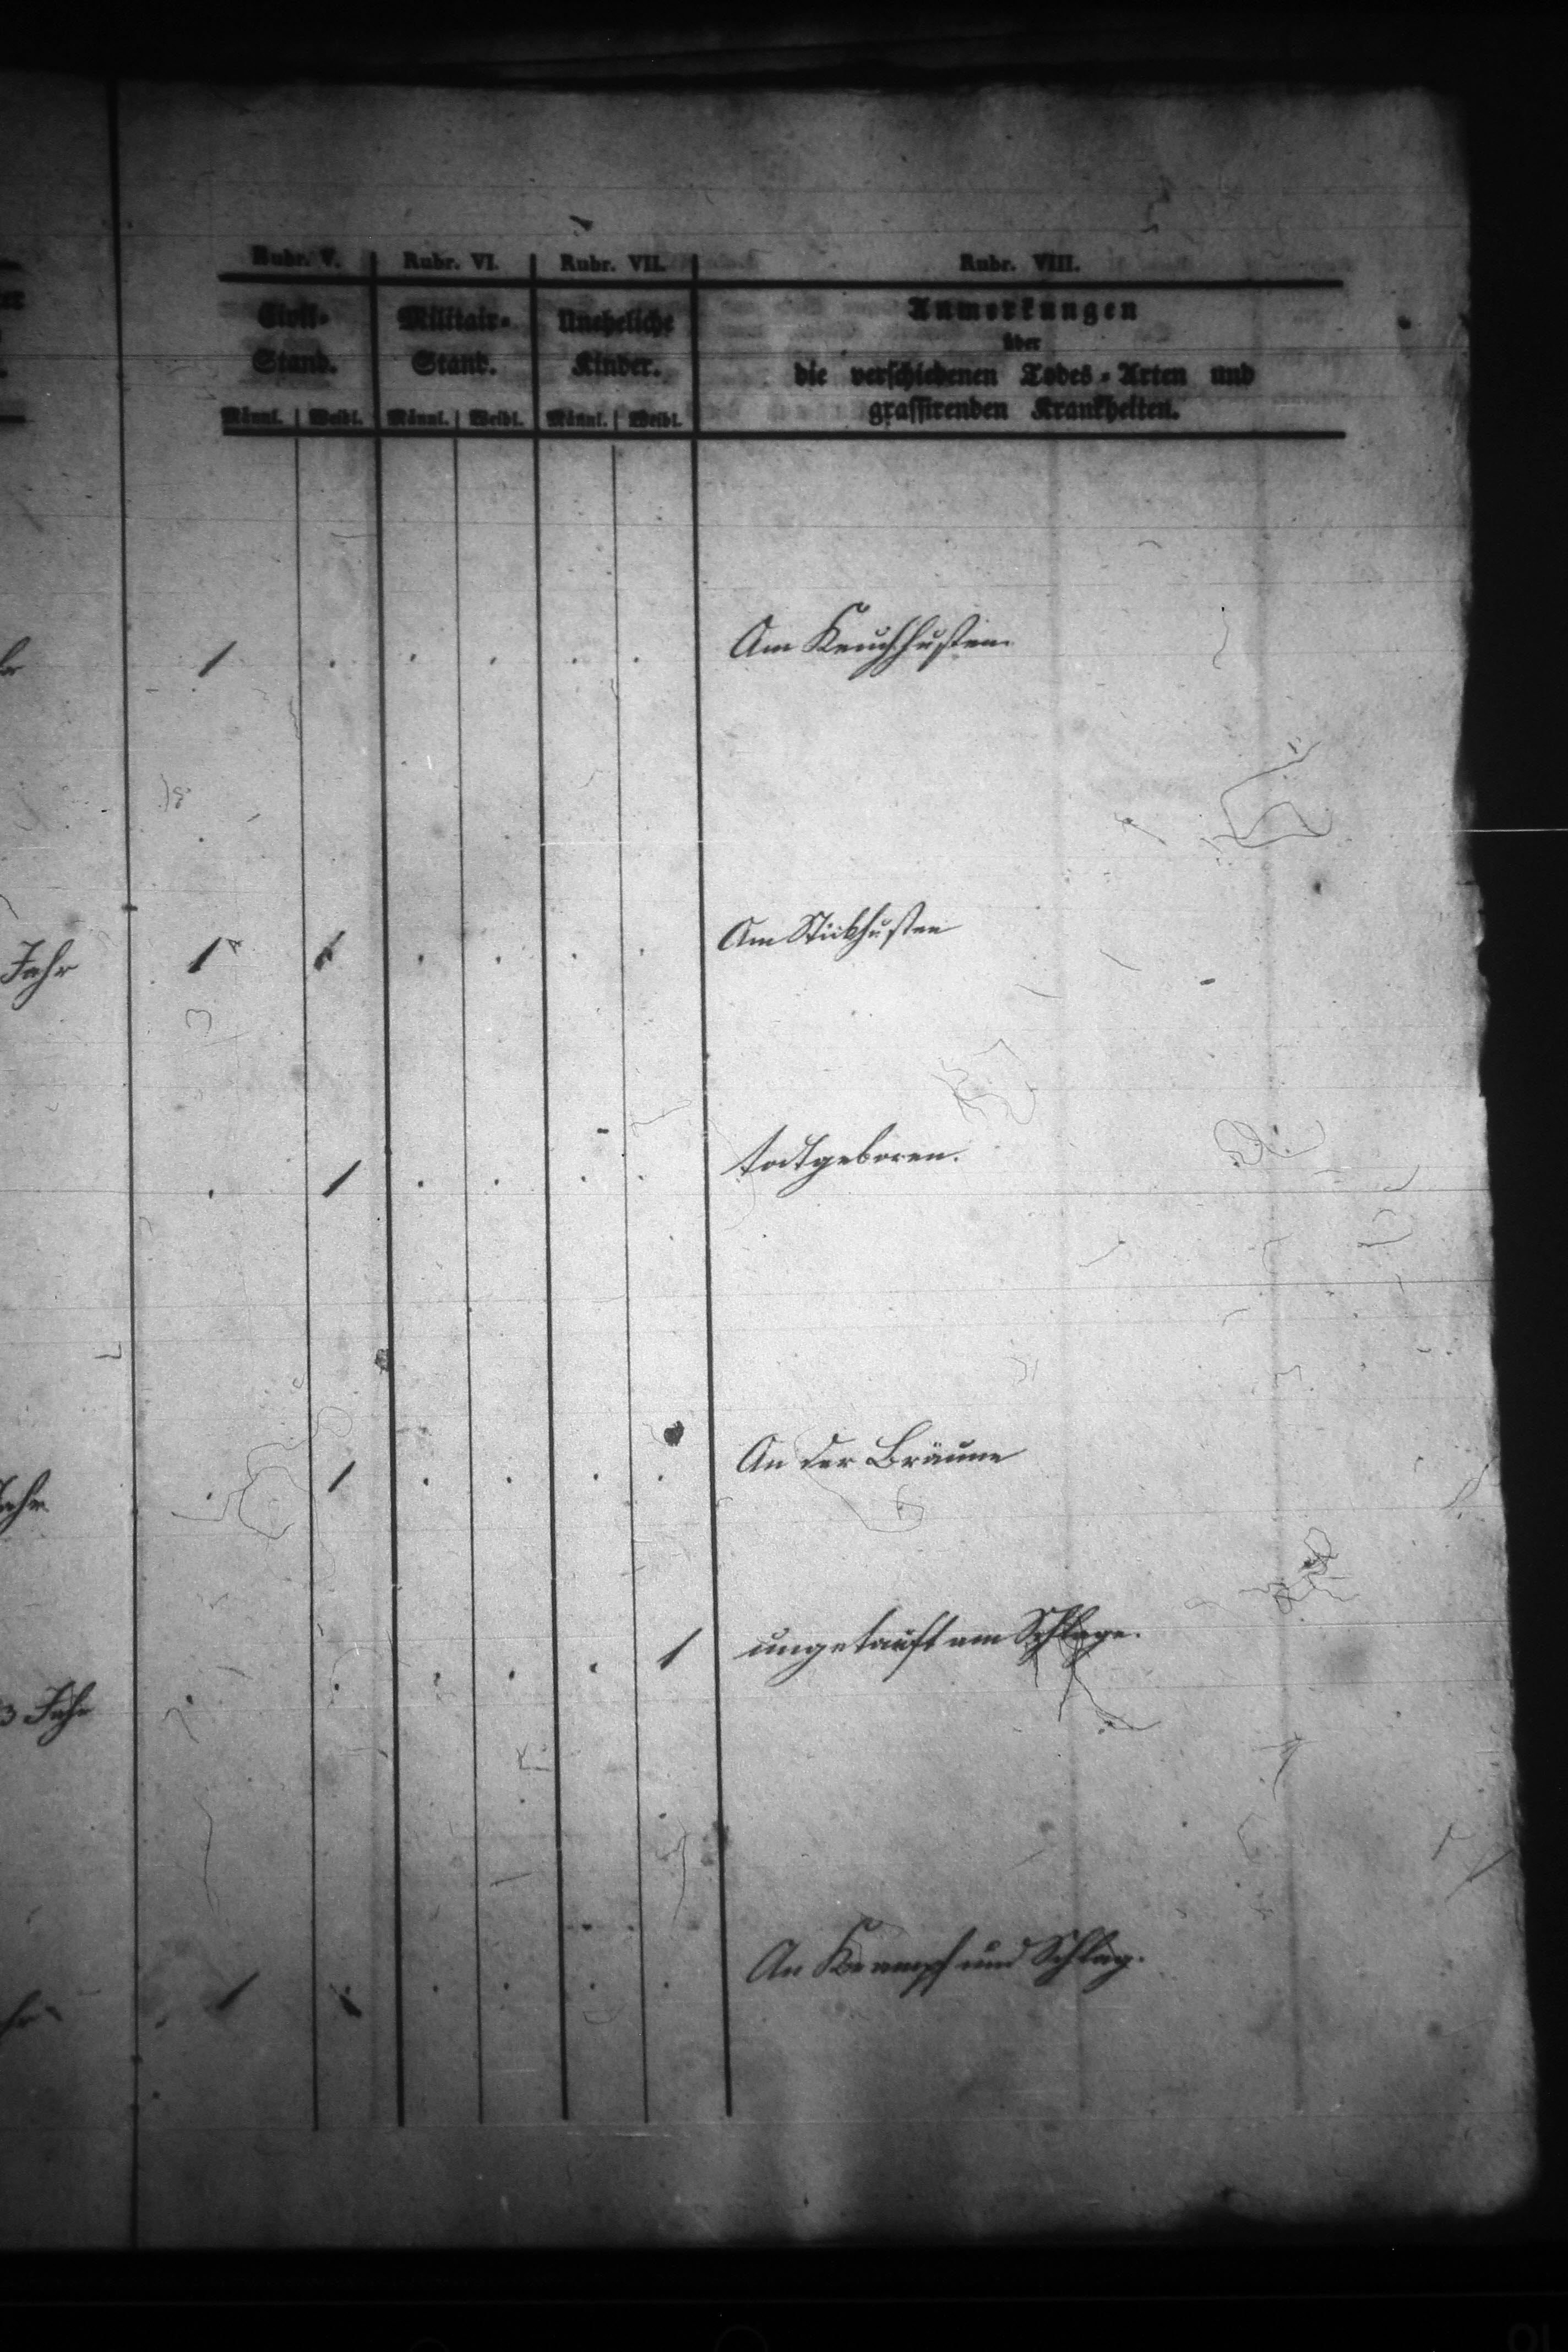 Rubr. V. Rubr. VI. Rubr. VII. Rubr. VIII.
Civil-Stand. Militair-Stand. Uneheliche Kinder. Anmerkungen
über
die verschiedenen Todes-Arten und
grassirenden Krankheiten.
Männl. Weibl. Männl. Weibl. Männl. Weibl.
1 . . . . . Am Keuchhusten.
Jahr 1 1 . . . . Am Stickhusten
. 1 . . . . todtgeboren.
. 1 . . . . An der Bräune
. . . 1 ungetauft am Schlage.
3 Jahr
1 . . . . An Krampf und Schlag.